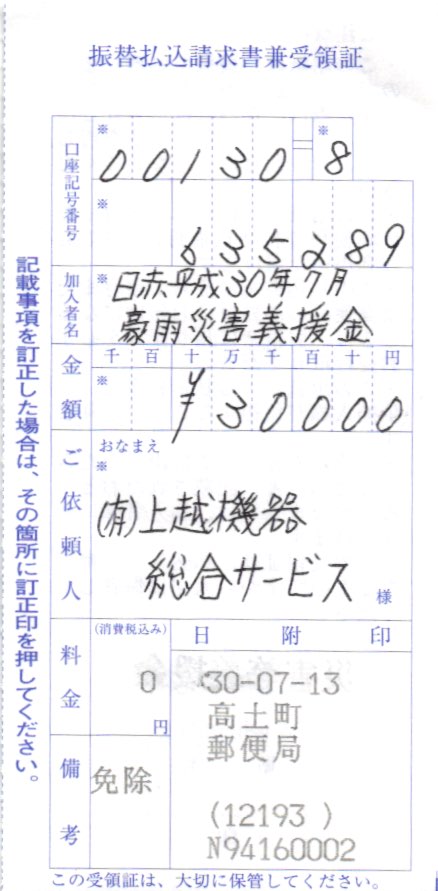 振替払込請求書兼受領証
口座記号番号
※
00130
※
8
※
635289
加入者名
※
日赤平成30年7月
豪雨災害義援金
金額
千 百 十 万 千 百 十 円
※
¥30000
ご依頼人
おなまえ
※
(有)上越機器
総合サービス
様
料金
(消費税込み)
0
円
日 附 印
30-07-13
高土町
郵便局
(12193 )
N94160002
備考
免除
記載事項を訂正した場合は、その箇所に訂正印を押してください。
この受領証は、大切に保管してください。